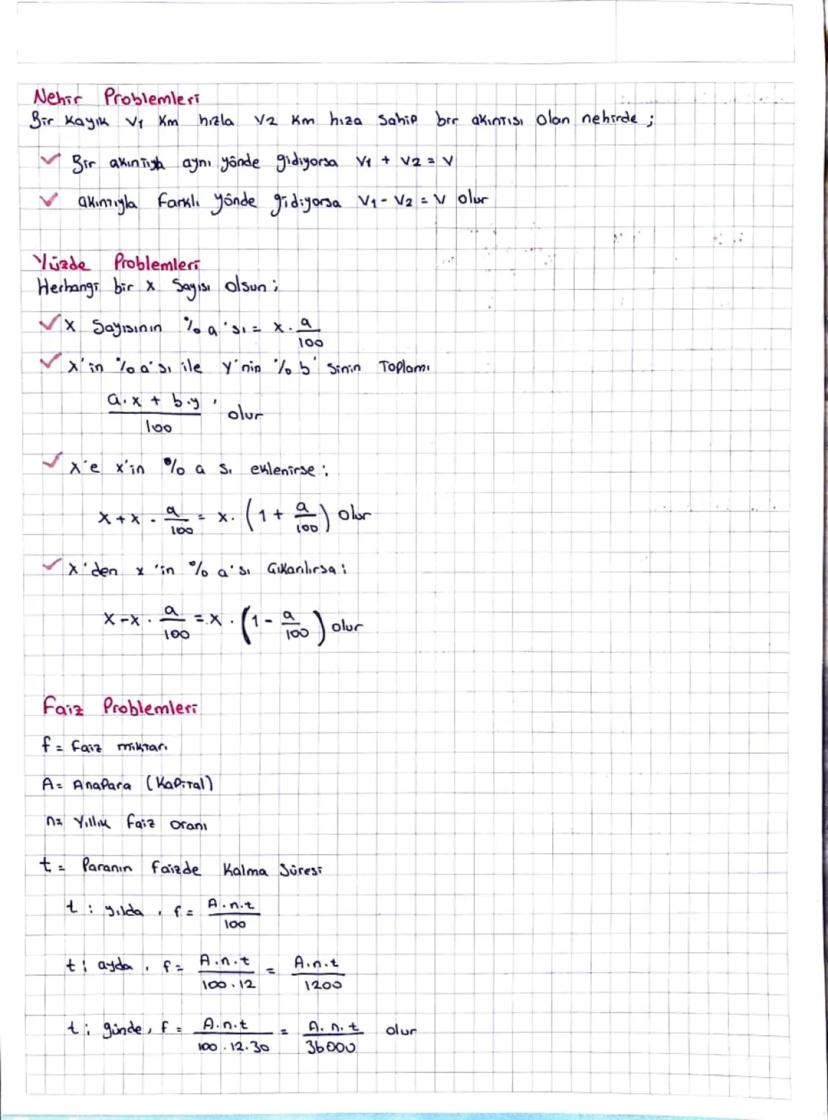 Nehir Problemleri
Bir kayık V1 km hızla V2 km hıza sahip bir akıntısı olan nehirde ;
✓ Bir akıntıyla aynı yönde gidiyorsa V1 + V2 = V
✓ akımıyla farklı yönde gidiyorsa V1 - V2 = V olur
Yüzde Problemleri
Herhangi bir x sayısı olsun ;
✓ x sayısının % a'sı = x . a/100
✓ x'in % a'sı ile y'nin % b' sinin Toplamı
(a.x + b.y)/100 ' olur
✓ x'e x'in % a sı eklenirse :
x + x . a/100 = x . (1 + a/100) olur
✓ x'den x 'in % a'sı Çıkarılırsa :
x - x . a/100 = x . (1 - a/100) olur
Faiz Problemleri
f = Faiz miktarı
A = Anapara (Kapital)
n = Yıllık faiz oranı
t = Paranın faizde kalma Süresi
t : yılda , f = A.n.t/100
t ; ayda , f = A.n.t/100.12 = A.n.t/1200
t ; günde , f = A.n.t/100.12.30 = A.n.t/36000 olur